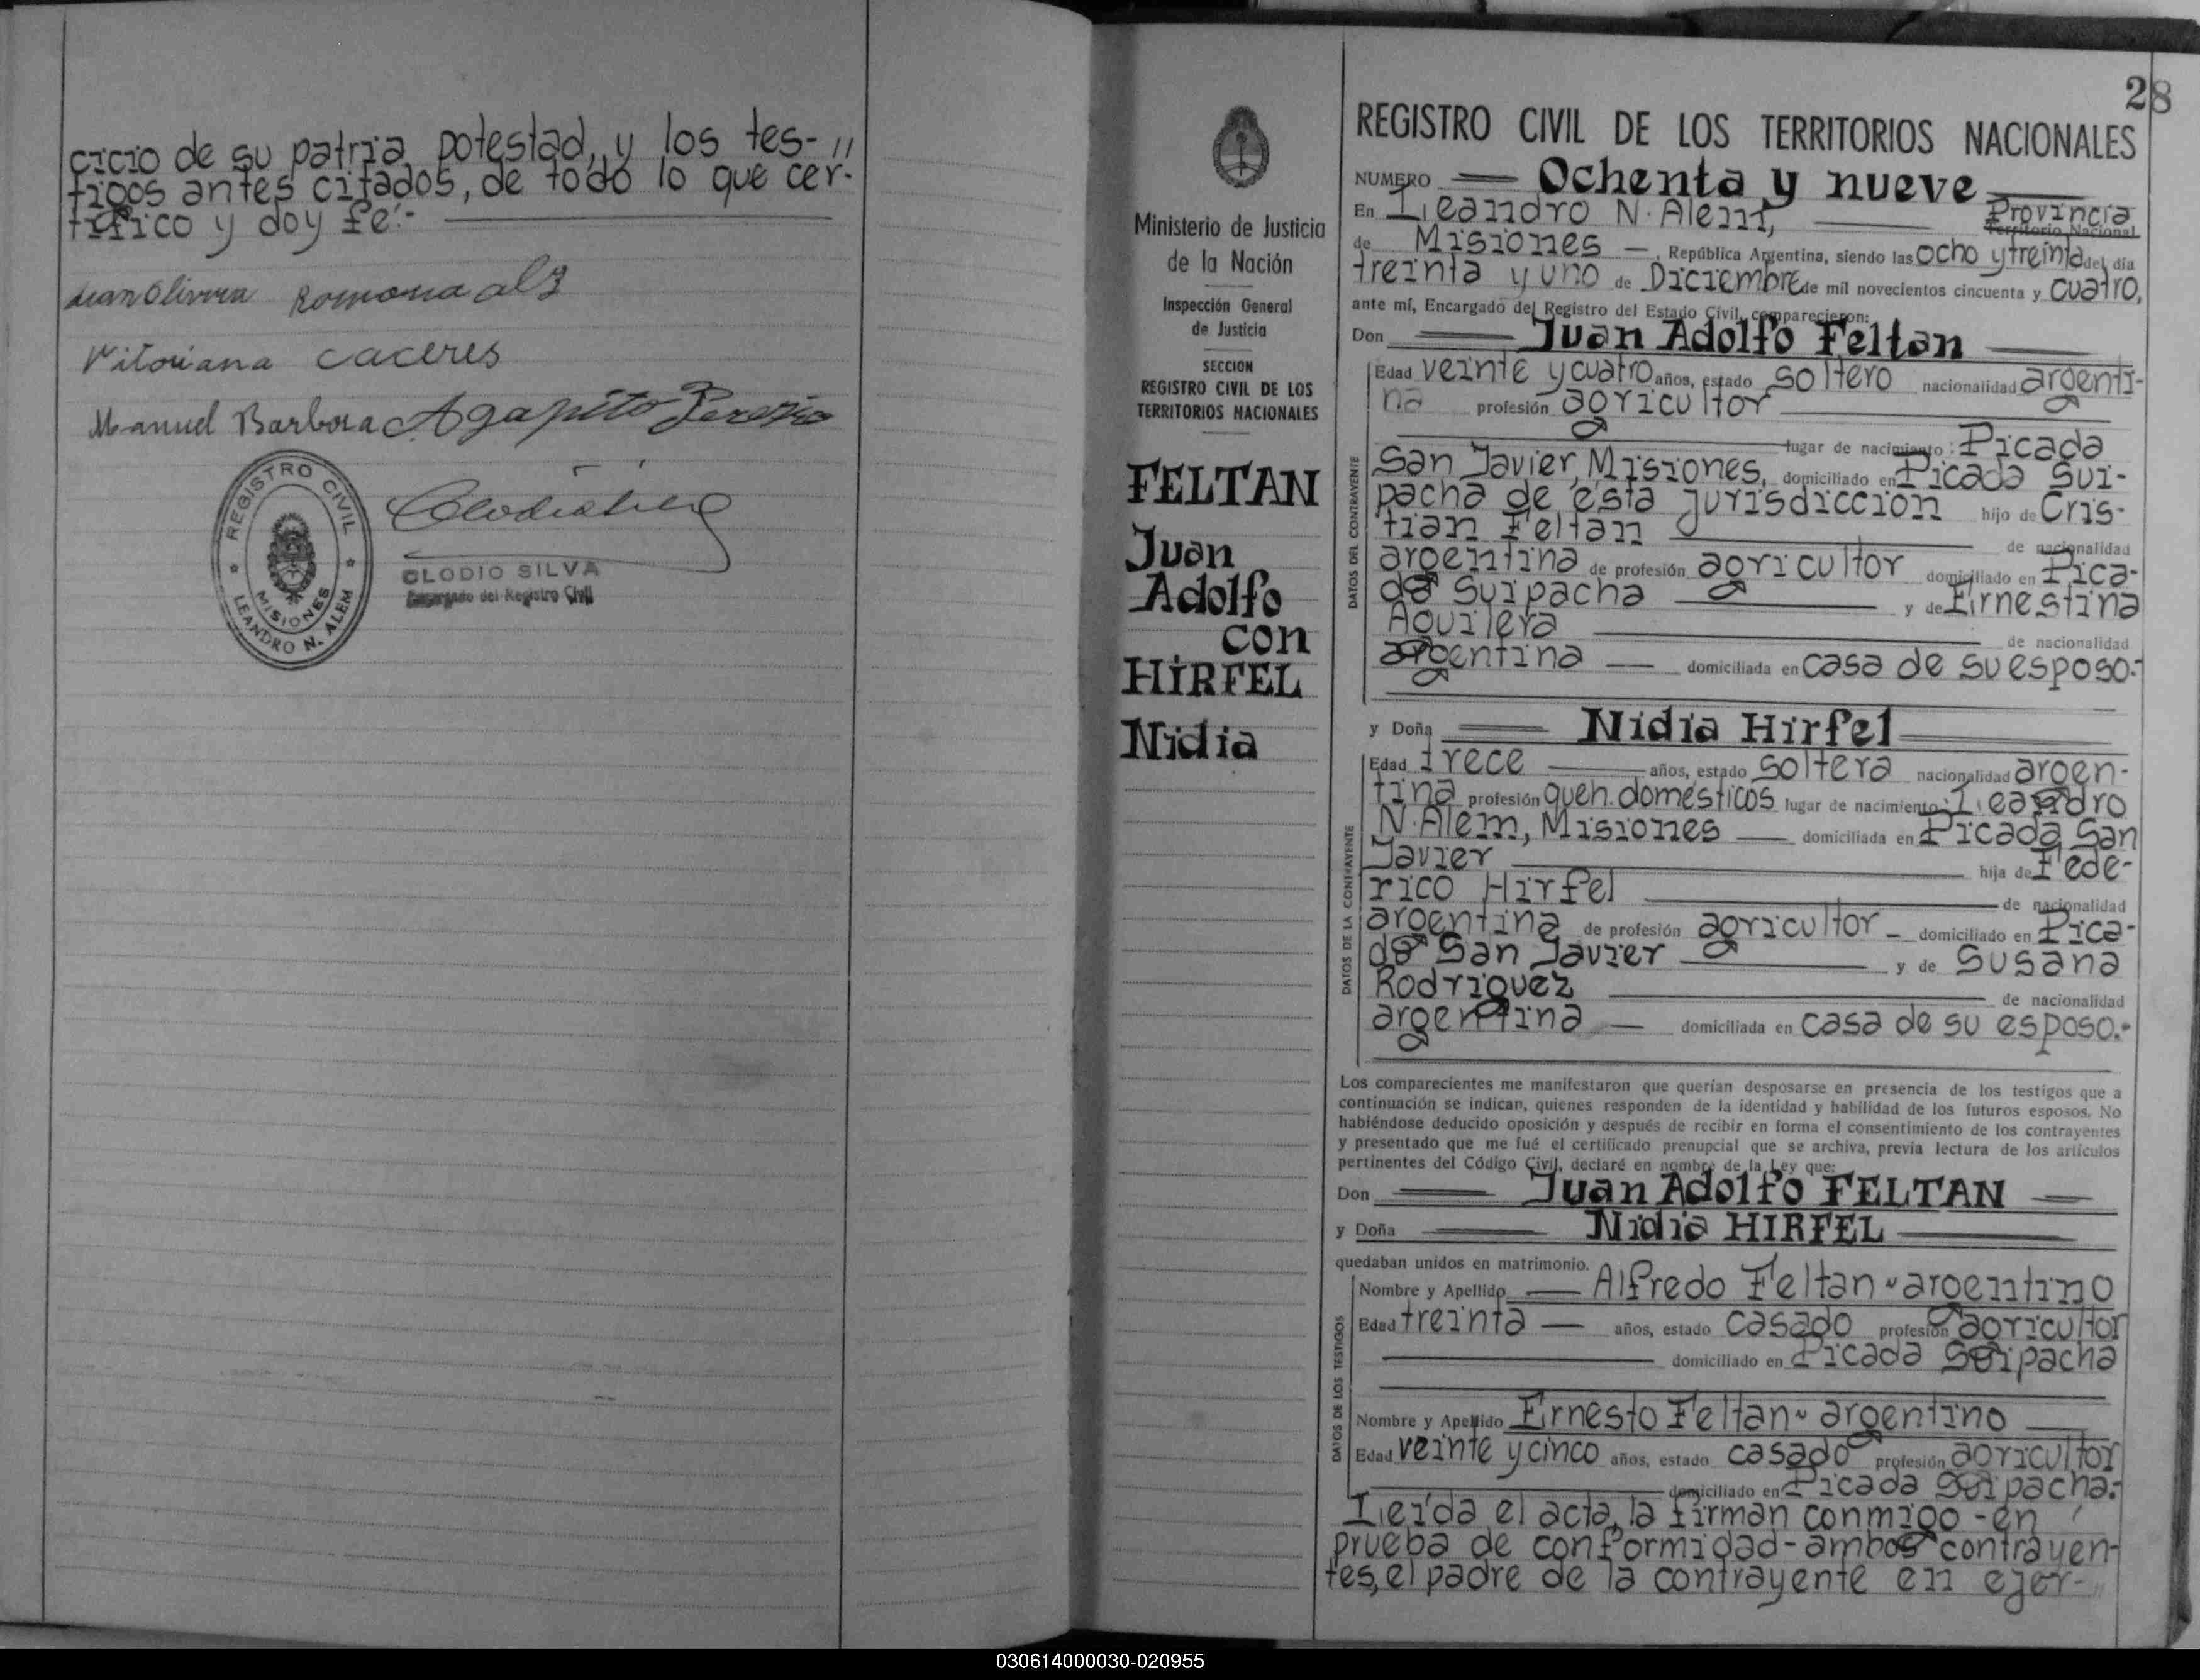 cicio de su patria potestad, y los tes- //
tigos antes citados, de todo lo que cer-
tifico y doy fé:-
Juan Olivera Romona
Vitoriana caceres
Manuel Barboza Agapito
REGISTRO CIVIL
MISIONES
LEANDRO N. ALEM
CLODIO SILVA
Encargado del Registro Civil
28
Ministerio de Justicia
de la Nación
Inspección General
de Justicia
SECCION
REGISTRO CIVIL DE LOS
TERRITORIOS NACIONALES
FELTAN
Juan
Adolfo
con
HIRFEL
Nidia
REGISTRO CIVIL DE LOS TERRITORIOS NACIONALES
NUMERO Ochenta y nueve
En Leandro N. Alem, Provincia
Territorio Nacional
de Misiones —, República Argentina, siendo las ocho y treinta del día
treinta y uno de Diciembre de mil novecientos cincuenta y cuatro,
ante mí, Encargado del Registro del Estado Civil, comparecieron:
Don Juan Adolfo Feltan
DATOS DEL CONTRAYENTE
Edad veinte y cuatro años, estado soltero nacionalidad argenti-
na profesión agricultor
lugar de nacimiento: Picada
San Javier, Misiones, domiciliado en Picada Sui-
pacha de ésta jurisdicción hijo de Cris-
tian Feltan de nacionalidad
argentina de profesión agricultor domiciliado en Pica-
da Suipacha y de Ernestina
Aguilera de nacionalidad
argentina — domiciliada en casa de su esposo.-
y Doña Nidia Hirfel
DATOS DE LA CONTRAYENTE
Edad trece años, estado soltera nacionalidad argen-
tina profesión queh. domésticos lugar de nacimiento: Leandro
N. Alem, Misiones — domiciliada en Picada San
Javier hija de Fede-
rico Hirfel de nacionalidad
argentina de profesión agricultor - domiciliado en Pica-
da San Javier y de Susana
Rodriguez de nacionalidad
argentina — domiciliada en casa de su esposo.-
Los comparecientes me manifestaron que querían desposarse en presencia de los testigos que a
continuación se indican, quienes responden de la identidad y habilidad de los futuros esposos. No
habiéndose deducido oposición y después de recibir en forma el consentimiento de los contrayentes
y presentado que me fué el certificado prenupcial que se archiva, previa lectura de los artículos
pertinentes del Código Civil, declaré en nombre de la Ley que:
Don Juan Adolfo FELTAN
y Doña Nidia HIRFEL
quedaban unidos en matrimonio.
DATOS DE LOS TESTIGOS
Nombre y Apellido — Alfredo Feltan - argentino
Edad treinta — años, estado casado profesión agricultor
domiciliado en Picada Suipacha
Nombre y Apellido Ernesto Feltan - argentino
Edad veinte y cinco años, estado casado profesión agricultor
domiciliado en Picada Suipacha.-
Leída el acta, la firman conmigo - en
prueba de conformidad - ambos contrayen-
tes, el padre de la contrayente en ejer-
030614000030-020955